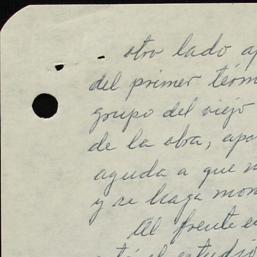 otro lado ap
del primer térm
grupo del viejo
de la obra, apa
aguda a que
y se haga mon
Al frente e
estudio